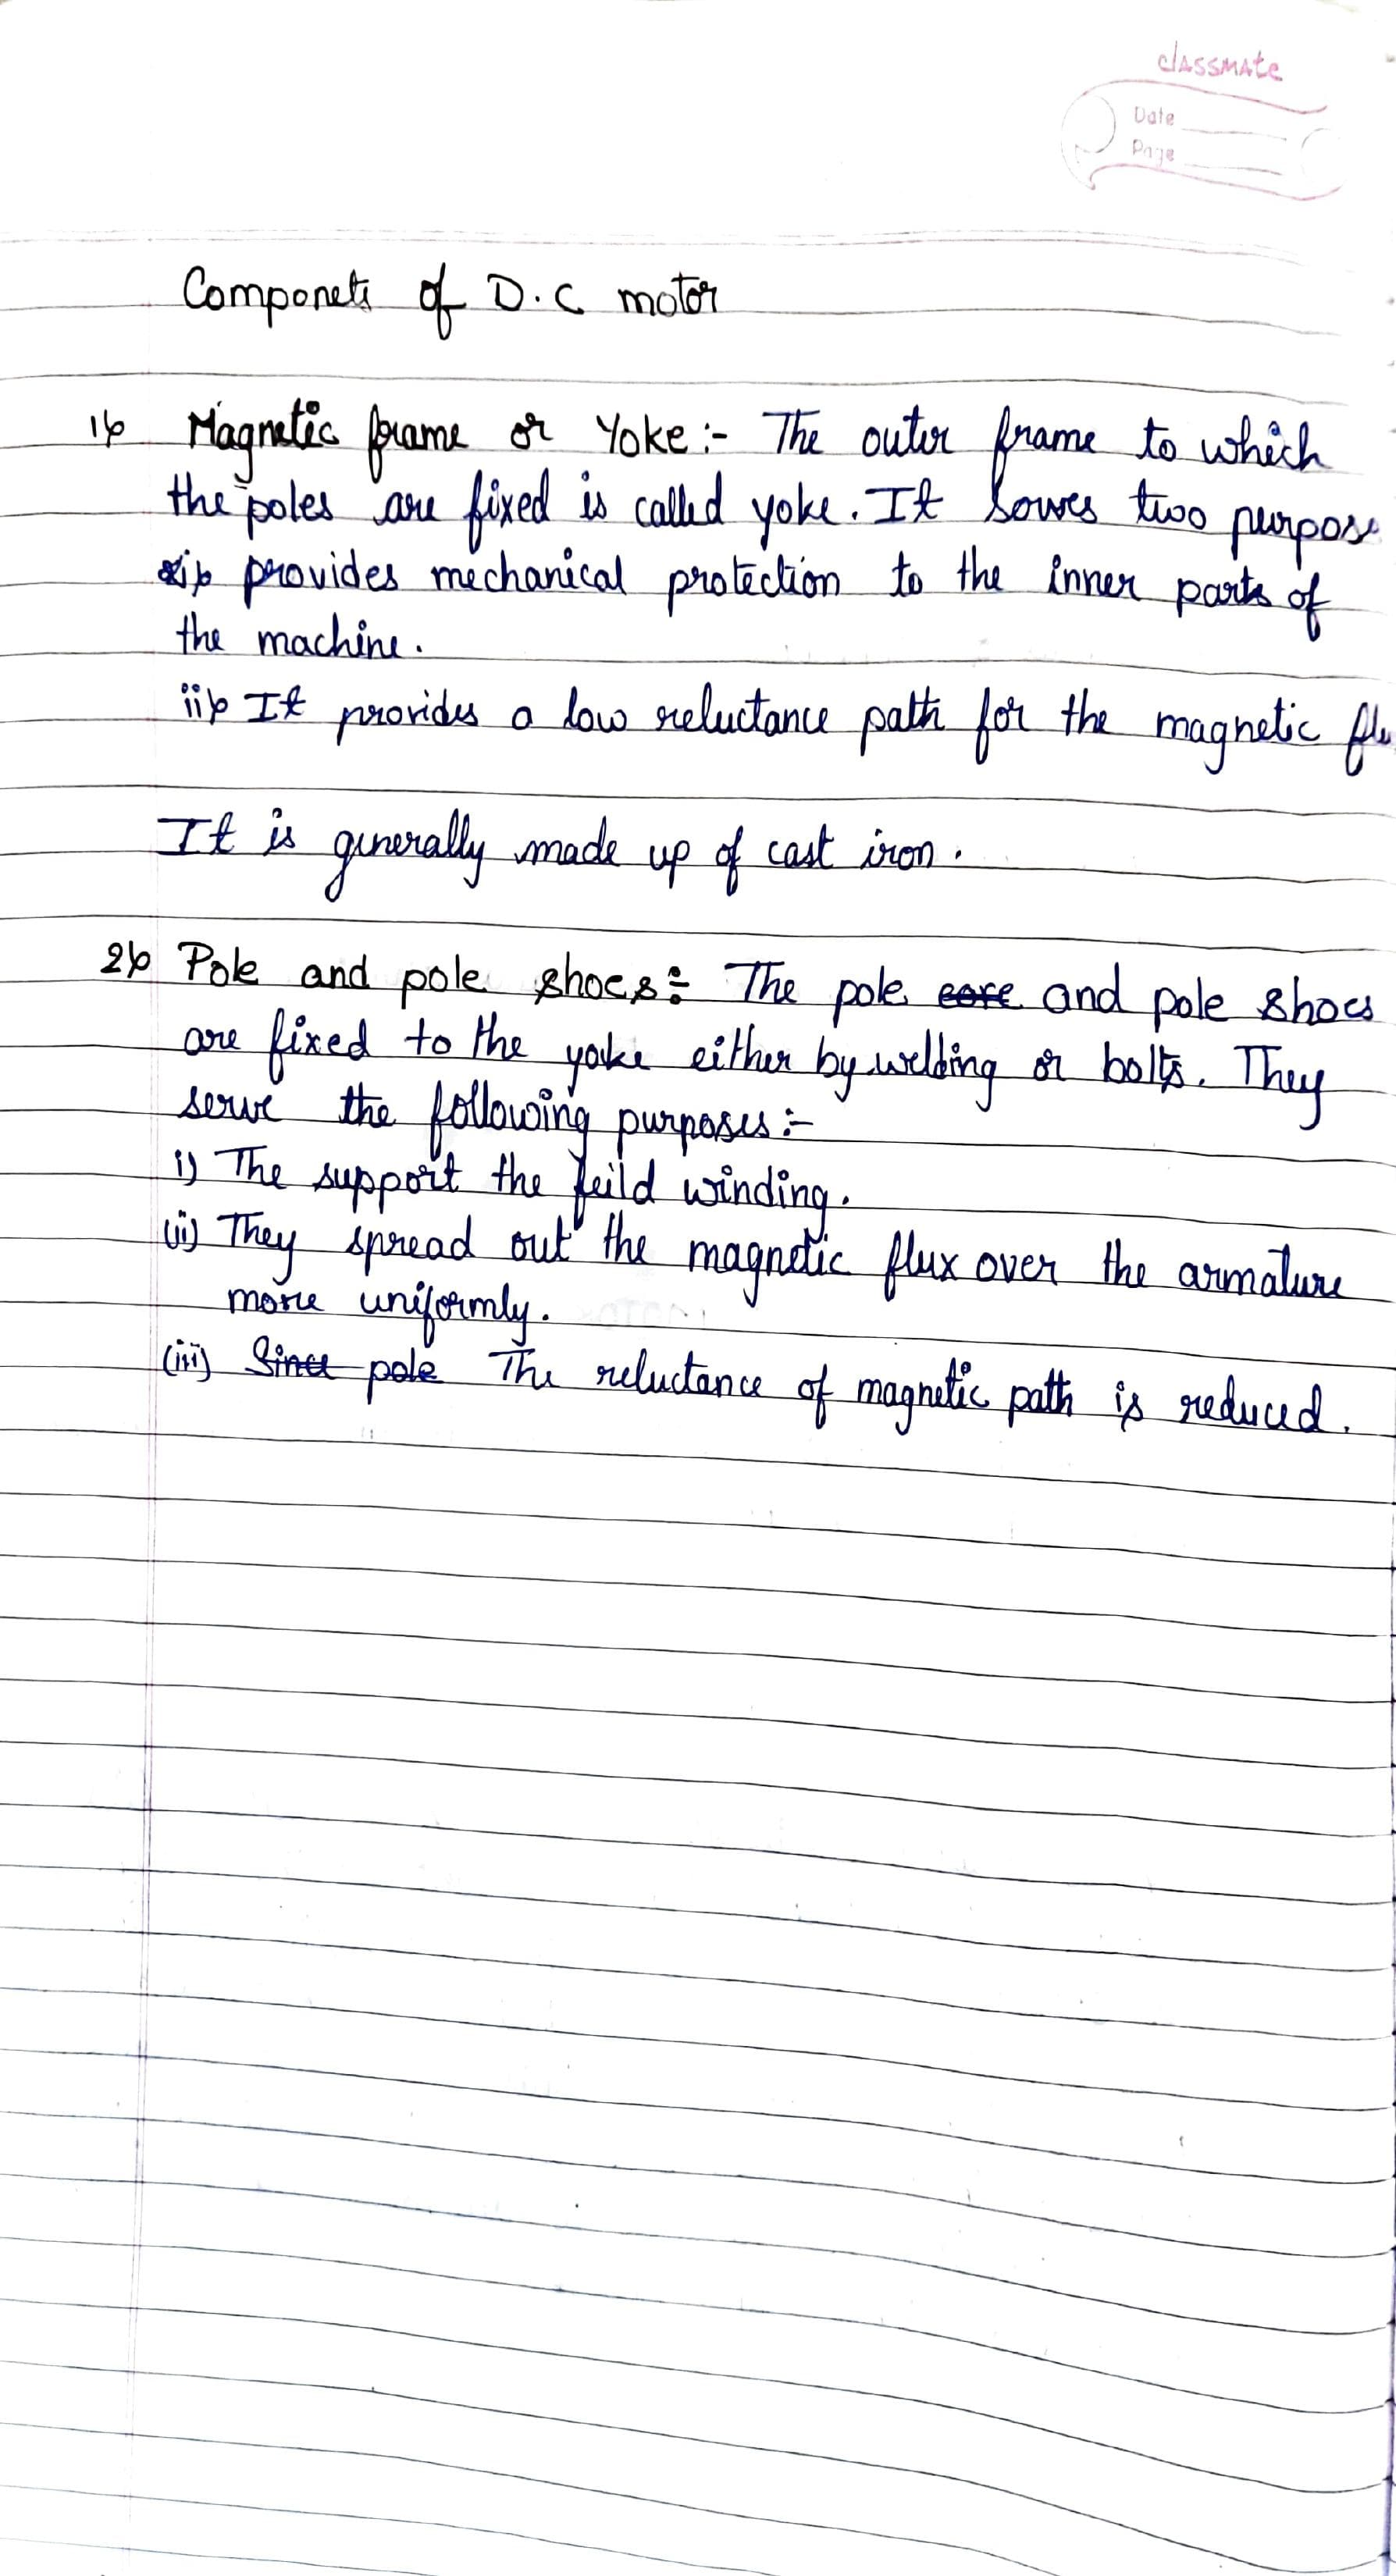 classmate
Date
Page
Componets of D.C motor
1) Magnetic frame or Yoke :- The outer frame to which
the poles are fixed is called yoke. It serves two purpose
i) provides mechanical protection to the inner parts of
the machine.
ii) It provides a low reluctance path for the magnetic flu
It is generally made up of cast iron.
2) Pole and pole shoes :- The pole core and pole shoes
are fixed to the yoke either by welding or bolts. They
serve the following purposes :-
i) The support the feild winding.
(ii) They spread out the magnetic flux over the armature
more uniformly.
(iii) Since pole The reluctance of magnetic path is reduced.